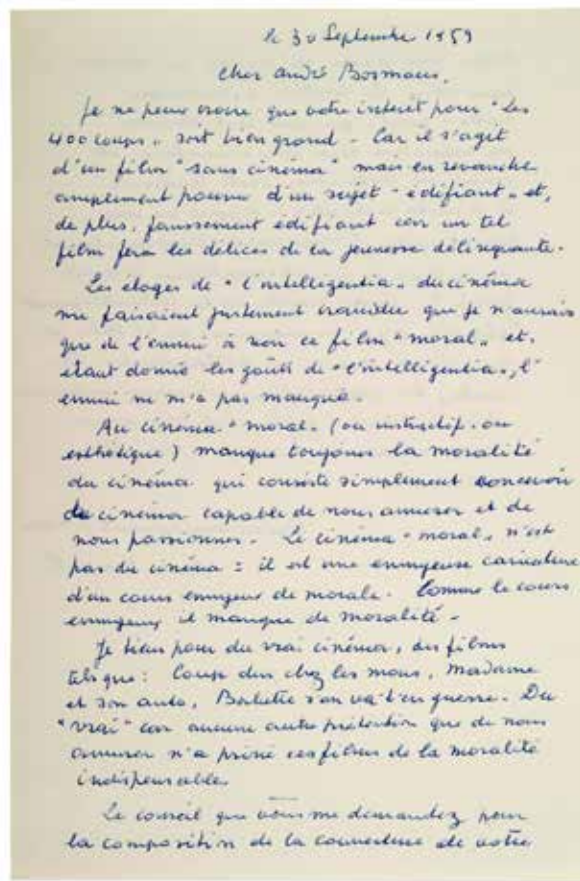 le 30 Septembre 1959
Cher André Bosmans,
Je ne peux croire que votre intérêt pour "Les
400 coups" soit bien grand - Car il s'agit
d'un film "sans cinéma" mais en revanche
amplement pourvu d'un sujet "édifiant" et,
de plus, faussement édifiant car un tel
film fera les délices de la jeunesse délinquante.
Les éloges de "l'intelligentia" du cinéma
me faisaient justement craindre que je n'aurais
que de l'ennui à voir ce film "moral" et,
étant donné les goûts de "l'intelligentia", l'
ennui ne m'a pas manqué.
Au cinéma "moral" (ou instructif ou
esthétique) manque toujours la moralité
du cinéma qui consiste simplement concevoir
du cinéma capable de nous amuser et de
nous passionner. Le cinéma "moral" n'est
pas du cinéma : il est une ennuyeuse caricature
d'un cours ennuyeux de morale. Comme le cours
ennuyeux il manque de moralité.
Je tiens pour du vrai cinéma, des films
tels que : Coup dur chez les mous, Madame
et son auto, Babette s'en va t'en guerre. Du
"vrai" car aucune autre prétention que de nous
amuser n'a privé ces films de la moralité
indispensable.
Le conseil que vous me demandez pour
la composition de la couverture de votre